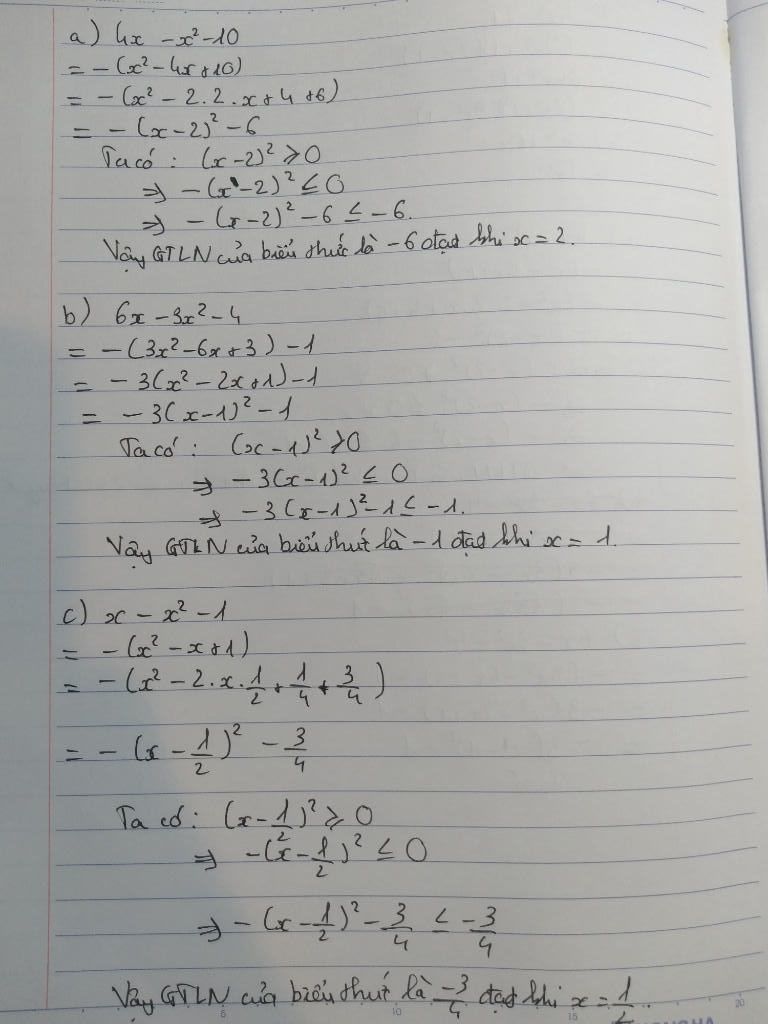 a) 4x - x² - 10
= - (x² - 4x + 10)
= - (x² - 2.2.x + 4 + 6)
= - (x - 2)² - 6
Ta có : (x - 2)² ⩾ 0
⇒ - (x - 2)² ≤ 0
⇒ - (x - 2)² - 6 ≤ - 6.
Vậy GTLN của biểu thức là - 6 đạt khi x = 2.
b) 6x - 3x² - 4
= - (3x² - 6x + 3) - 1
= - 3(x² - 2x + 1) - 1
= - 3(x - 1)² - 1
Ta có : (x - 1)² ⩾ 0
⇒ - 3(x - 1)² ≤ 0
⇒ - 3(x - 1)² - 1 ≤ - 1.
Vậy GTLN của biểu thức là - 1 đạt khi x = 1.
c) x - x² - 1
= - (x² - x + 1)
= - (x² - 2.x.1/2 + 1/4 + 3/4)
= - (x - 1/2)² - 3/4
Ta có : (x - 1/2)² ⩾ 0
⇒ - (x - 1/2)² ≤ 0
⇒ - (x - 1/2)² - 3/4 ≤ -3/4
Vậy GTLN của biểu thức là -3/4 đạt khi x = 1/2.
5 10 15 20